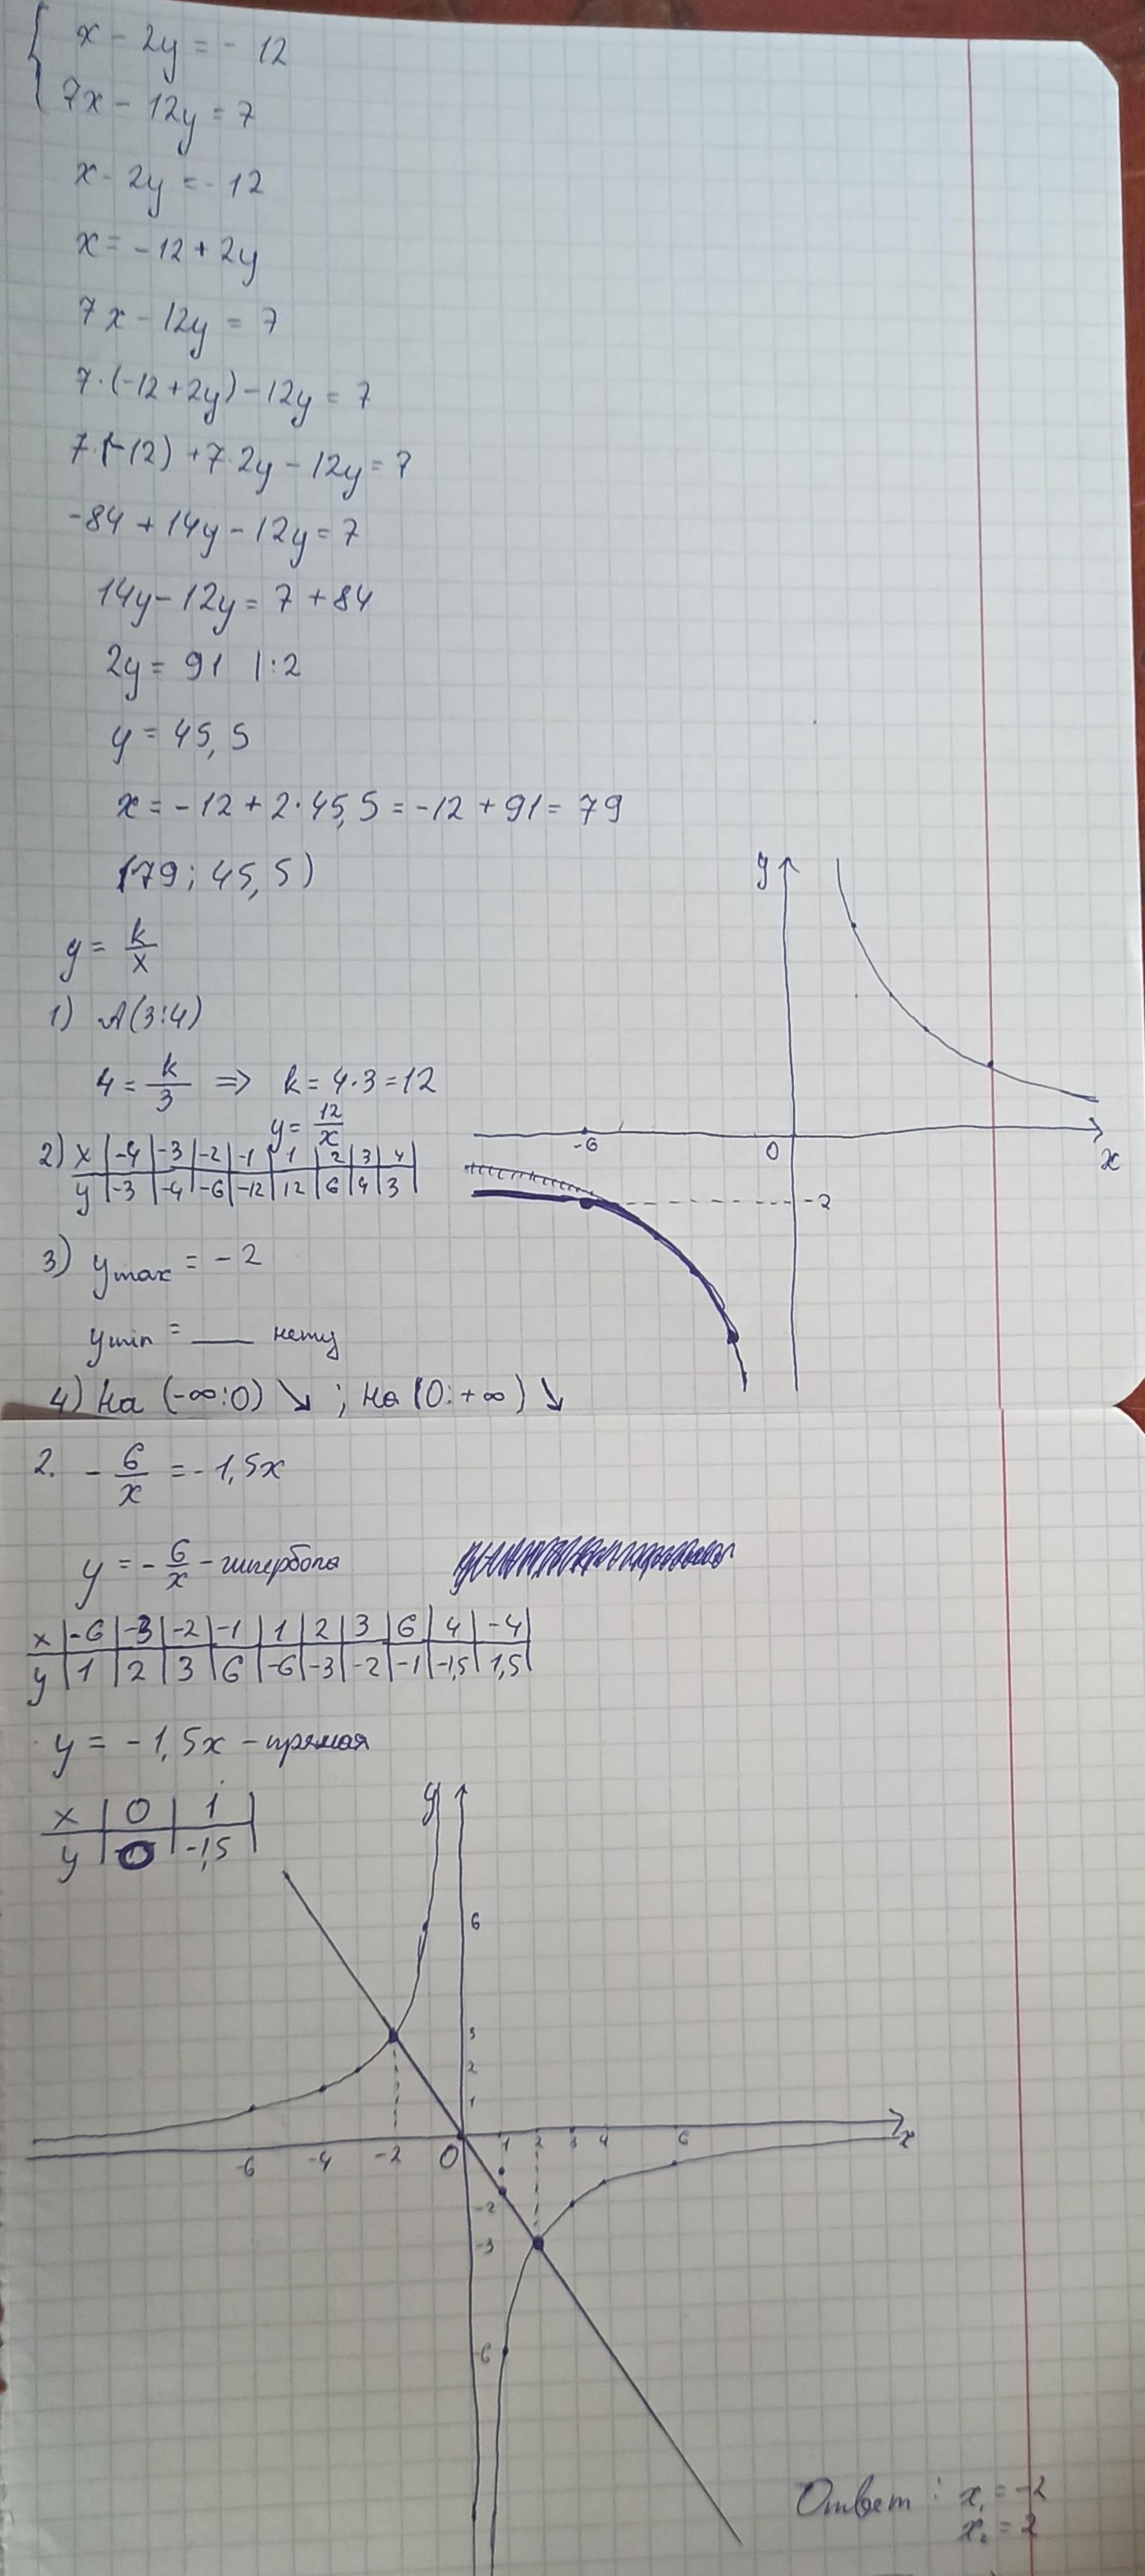 { x - 2y = - 12
7x - 12y = 7
x - 2y = - 12
x = -12 + 2y
7x - 12y = 7
7·(-12+2y) - 12y = 7
7·(-12) + 7·2y - 12y = 7
-84 + 14y - 12y = 7
14y - 12y = 7 + 84
2y = 91 |:2
y = 45,5
x = -12 + 2·45,5 = -12 + 91 = 79
(79; 45,5)
y = k/x
1) A(3;4)
4 = k/3 => k = 4·3 = 12
y = 12/x
2) x | -4 | -3 | -2 | -1 | 1 | 2 | 3 | 4 |
y | -3 | -4 | -6 | -12 | 12 | 6 | 4 | 3 |
y
-6 0 x
-2
3) y max = -2
y min = — нету
4) На (-∞;0) ↘ ; на (0;+∞) ↘
2. - 6/x = -1,5x
y = - 6/x - гипербола
x | -6 | -3 | -2 | -1 | 1 | 2 | 3 | 6 | 4 | -4 |
y | 1 | 2 | 3 | 6 | -6 | -3 | -2 | -1 | -1,5 | 1,5 |
y = -1,5x - прямая
x | 0 | 1 |
y | 0 | -1,5 |
y
6
3
2
1
-6 -4 -2 0 1 2 3 4 6 x
-2
-3
-6
Ответ: x₁ = -2
x₂ = 2